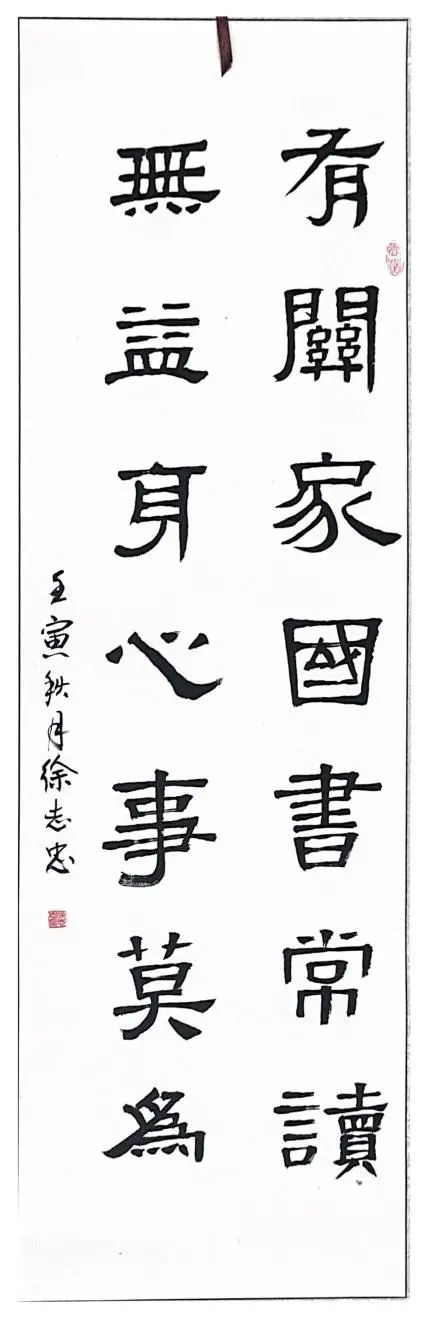 有關家國書常讀
無益身心事莫為
壬寅秋月徐志忠